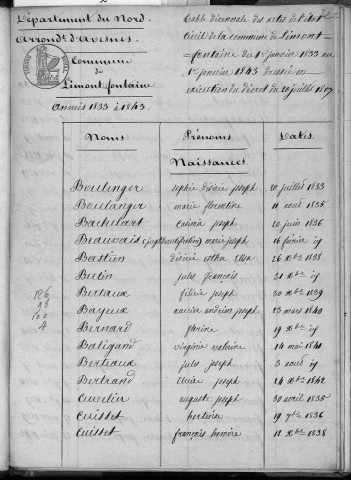 Département du Nord.
Arrondt d'Avesnes.
Commune
de
Limont fontaine
Années 1833 à 1843.
Table décennale des actes de l'état
Civil de la commune de Limont-
fontaine du 1er janvier 1833 au
1er janvier 1843 dressée en
exécution du décret du 20 juillet 1807
Noms Prénoms Dates
Naissances
Boulenger sophie désirée joseph 20 juillet 1833
Boulanger marie florentine 11 août 1835
Bachelart joseph 20 juin 1836
Beauvais marie joseph 16 février id
Bastien désirée Elisa 26 Xbre 1838
Bertin jules françois 31 Xbre id
Bertaux félicie joseph 30 Xbre 1839
Bayeux xavier joseph 23 mars 1840
Bernard florine 19 Xbre id
Baligand virginie 14 mai 1841
Berteaux jules joseph 3 août id
Bertrand joseph 24 Xbre 1842
Cuvelier auguste joseph 30 avril 1835
Cuisset hortense 19 7bre 1836
Cuisset françois homère 12 Xbre 1838
126
100
4